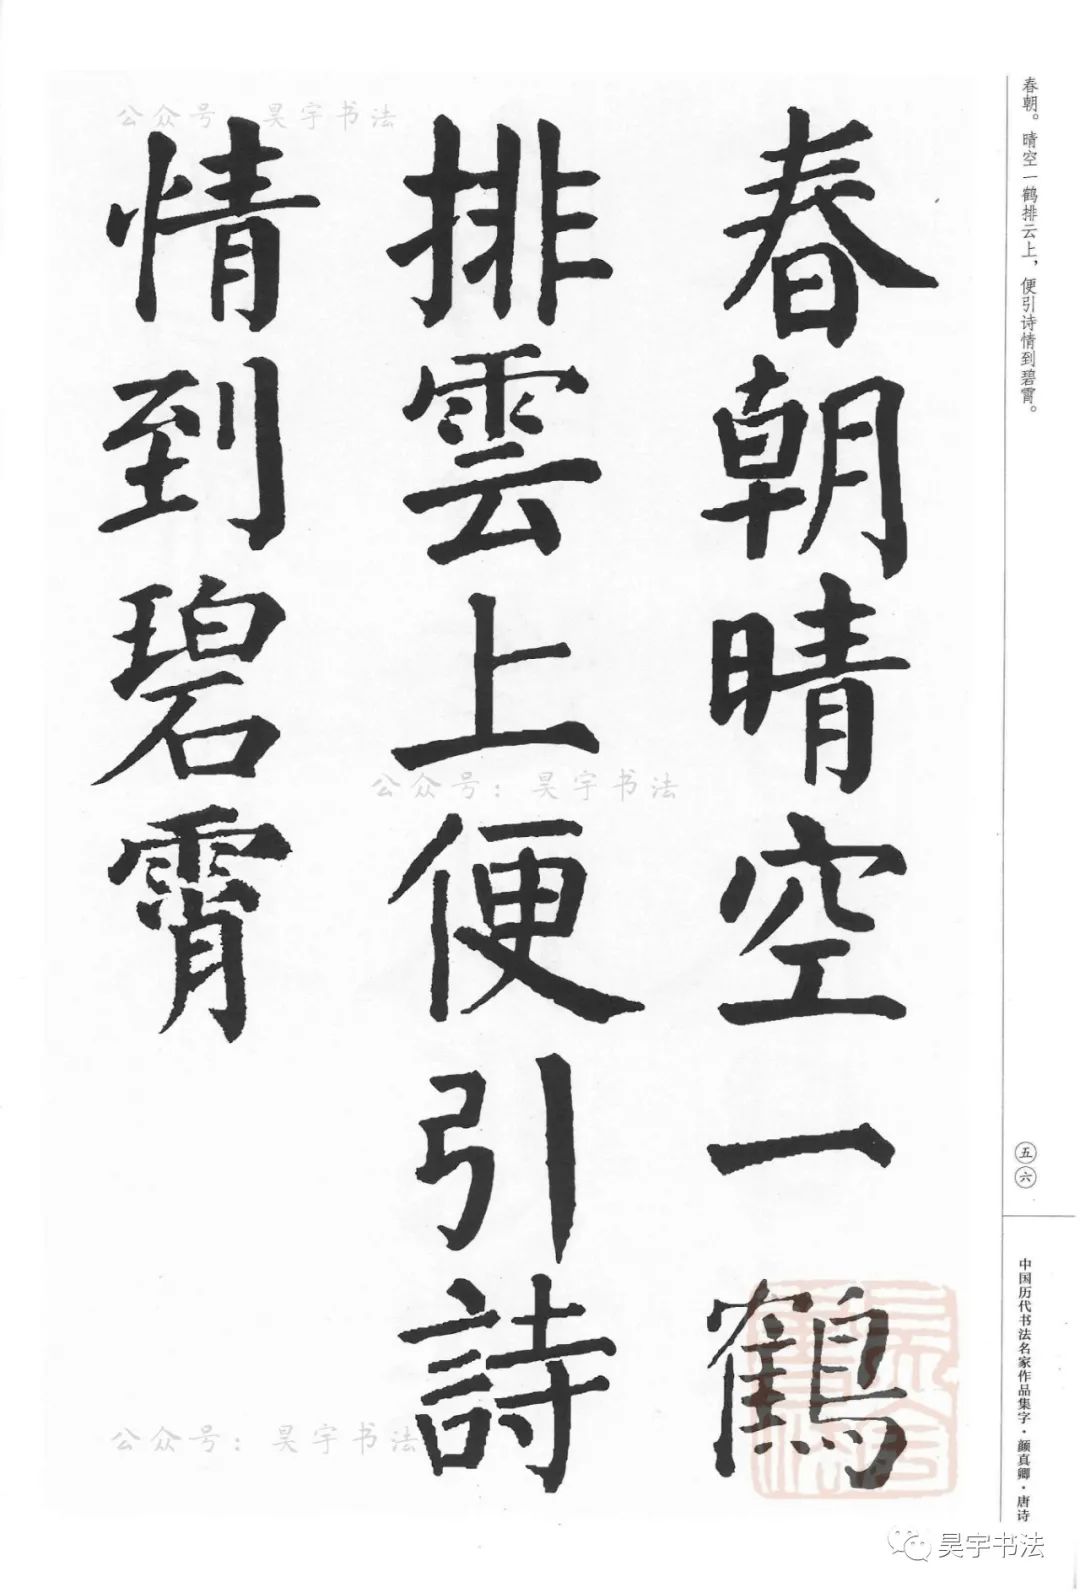 春朝晴空一鶴
排雲上便引詩
情到碧霄
春朝。晴空一鹤排云上，便引诗情到碧霄。
五六
中国历代书法名家作品集字·颜真卿·唐诗
公众号：昊宇书法
公众号：昊宇书法
公众号：昊宇书法
昊宇书法